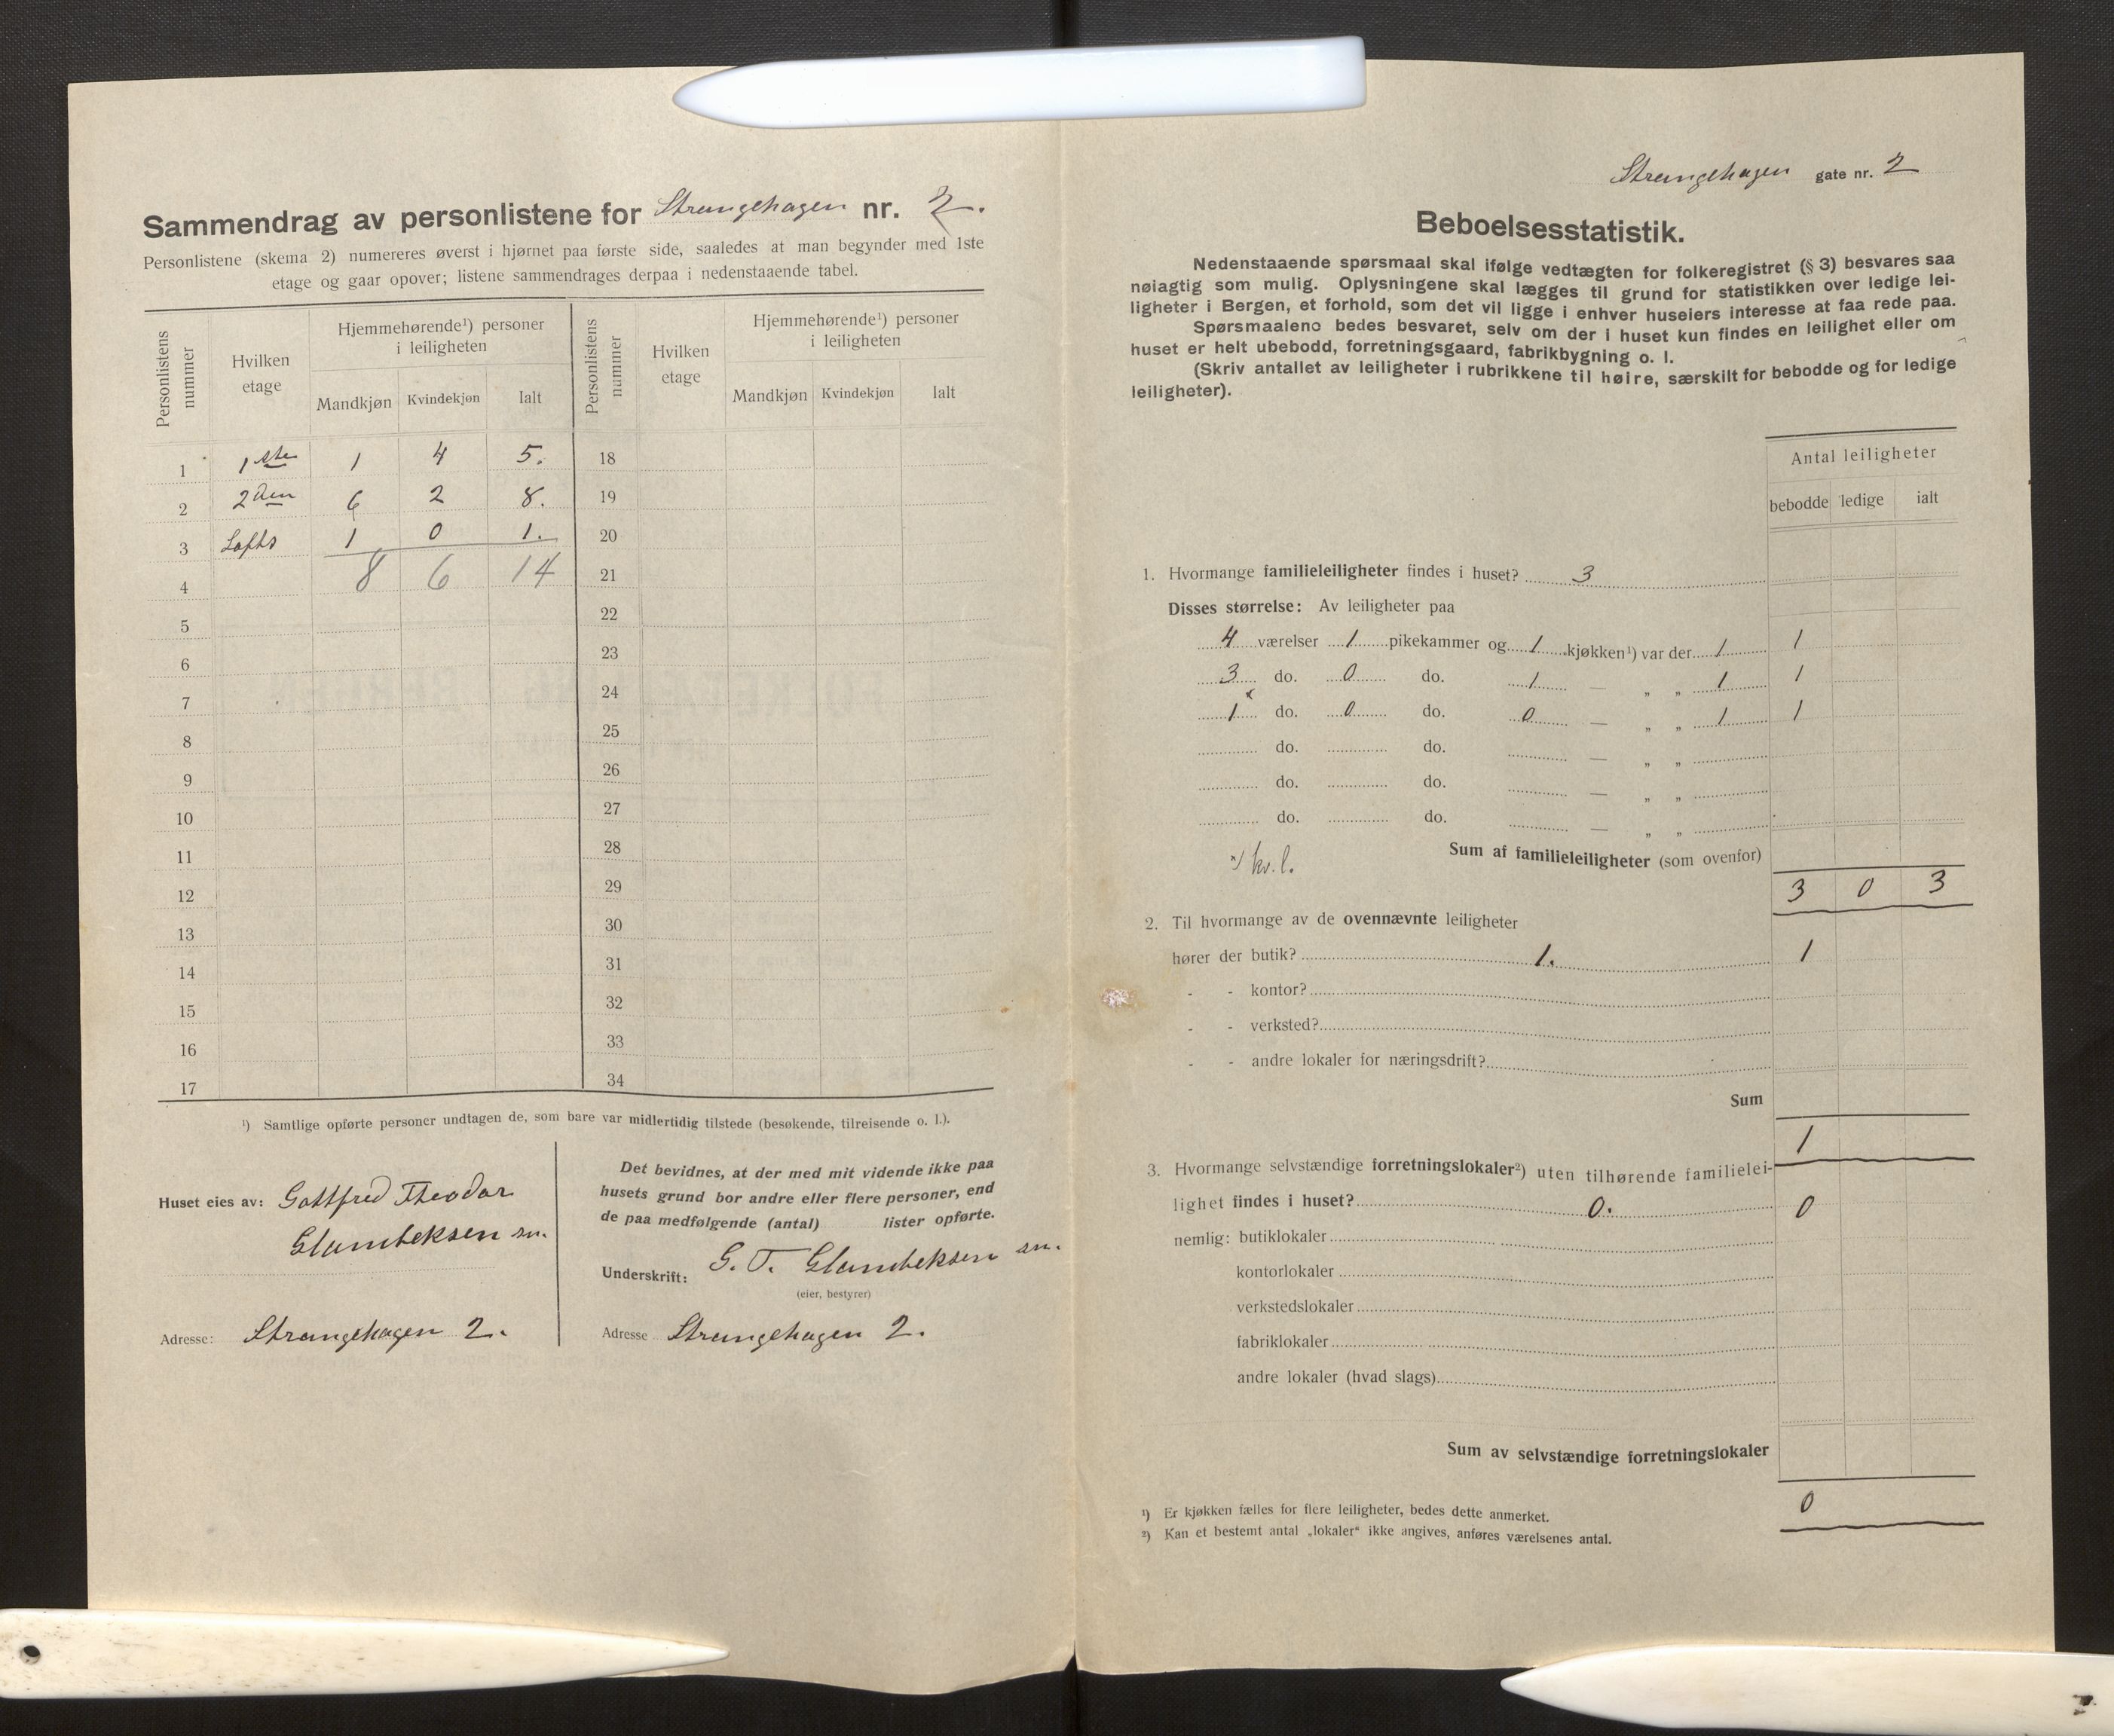 Sammendrag av personlistene for Strangehagen nr. 2.
Personlistene (skema 2) numereres øverst i hjørnet paa første side, saaledes at man begynder med 1ste
etage og gaar opover; listene sammendrages derpaa i nedenstaaende tabel.
Personlistens nummer
Hvilken etage
Hjemmehørende¹) personer i leiligheten
Mandkjøn Kvindekjøn Ialt
Personlistens nummer
Hvilken etage
Hjemmehørende¹) personer i leiligheten
Mandkjøn Kvindekjøn Ialt
1 1ste 1 4 5. 18
2 2den 6 2 8. 19
3 Lofts 1 0 1. 20
4 8 6 14 21
5 22
6 23
7 24
8 25
9 26
10 27
11 28
12 29
13 30
14 31
15 32
16 33
17 34
¹) Samtlige opførte personer undtagen de, som bare var midlertidig tilstede (besøkende, tilreisende o. l.).
Huset eies av: Gottfred Theodor
Glambeksen sn.
Adresse: Strangehagen 2.
Det bevidnes, at der med mit vidende ikke paa
husets grund bor andre eller flere personer, end
de paa medfølgende (antal) lister opførte.
Underskrift: G. T. Glambeksen sn.
(eier, bestyrer)
Adresse Strangehagen 2.
Strangehagen gate nr. 2
Beboelsesstatistik.
Nedenstaaende spørsmaal skal ifølge vedtægten for folkeregistret (§ 3) besvares saa
nøiagtig som mulig. Oplysningene skal lægges til grund for statistikken over ledige lei-
ligheter i Bergen, et forhold, som det vil ligge i enhver huseiers interesse at faa rede paa.
Spørsmaalene bedes besvaret, selv om der i huset kun findes en leilighet eller om
huset er helt ubebodd, forretningsgaard, fabrikbygning o. l.
(Skriv antallet av leiligheter i rubrikkene til høire, særskilt for bebodde og for ledige
leiligheter).
Antal leiligheter
bebodde ledige ialt
1. Hvormange familieleiligheter findes i huset? 3
Disses størrelse: Av leiligheter paa
4 værelser 1 pikekammer og 1 kjøkken¹) var der 1 1
3 do. 0 do. 1 — „ „ 1 1
1 x do. 0 do. 0 — „ „ 1 1
do. do. — „ „
do. do. — „ „
do. do. — „ „
x) kv.l.
Sum af familieleiligheter (som ovenfor)
3 0 3
2. Til hvormange av de ovennævnte leiligheter
hører der butik? 1. 1
- - kontor?
- - verksted?
- - andre lokaler for næringsdrift?
Sum
1
3. Hvormange selvstændige forretningslokaler²) uten tilhørende familielei-
lighet findes i huset? 0. 0
nemlig: butiklokaler
kontorlokaler
verkstedslokaler
fabriklokaler
andre lokaler (hvad slags)
Sum av selvstændige forretningslokaler
0
¹) Er kjøkken fælles for flere leiligheter, bedes dette anmerket.
²) Kan et bestemt antal „lokaler“ ikke angives, anføres værelsenes antal.